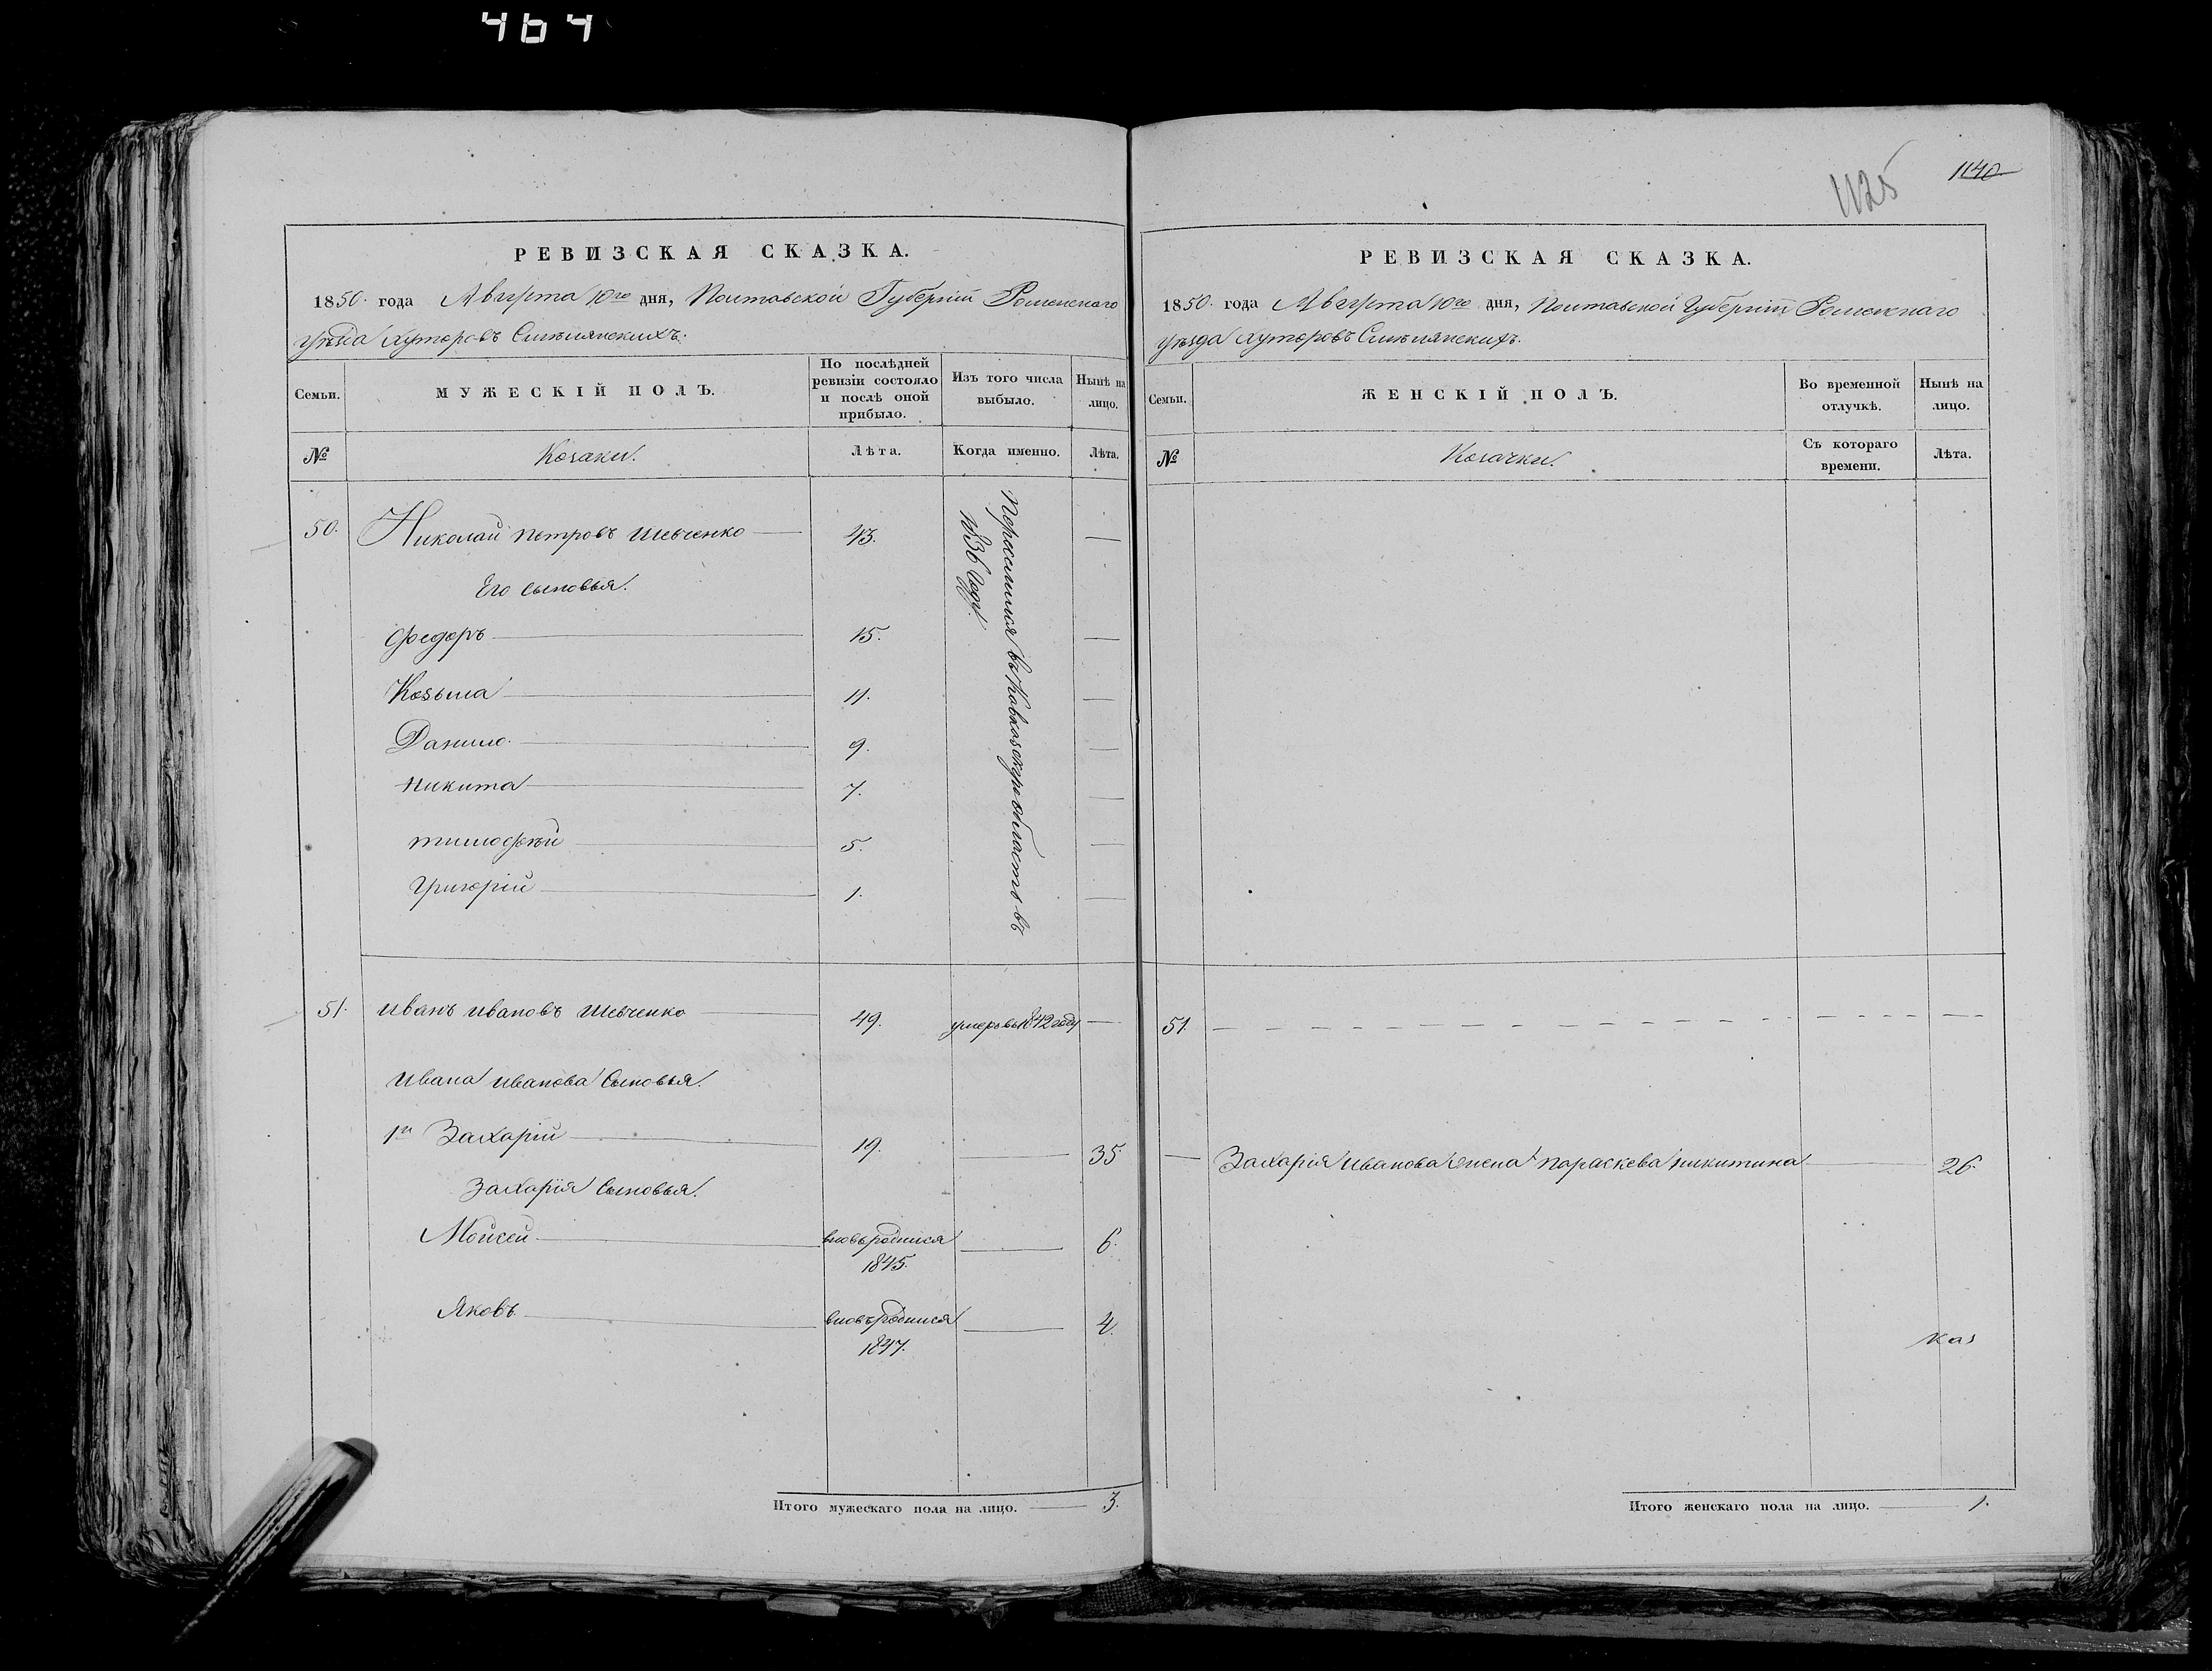 464
1125
1140
РЕВИЗСКАЯ СКАЗКА.
1850. года Августа 10го дня, Полтавской Губерніи Роменскаго
уѣзда Хуторовъ
Семьи.
МУЖЕСКІЙ ПОЛЪ.
По послѣдней
ревизіи состояло
и послѣ оной
прибыло.
Изъ того числа
выбыло.
Нынѣ на
лицо.
№
Козаки.
Лѣта.
Когда именно.
Лѣта.
50. Николай Петровъ Шевченко 43.
Переселился въ Кавказскую область въ
1836 году
Его сыновья.
Федоръ 15.
Козьма 11.
Данило 9.
Никита 7.
Тимофѣй 5.
Григорій 1.
51. Иванъ Ивановъ Шевченко 49. умеръ въ 1842 году
Ивана Иванова сыновья.
1й Захарій 19. 35
Захарія сыновья.
Мойсей вновь родился 6.
1845.
Яковъ вновь родился 4.
1847.
Итого мужескаго пола на лицо. 3.
РЕВИЗСКАЯ СКАЗКА.
1850. года Августа 10го дня, Полтавской Губерніи Роменскаго
уѣзда Хуторовъ
Семьи.
ЖЕНСКІЙ ПОЛЪ.
Во временной
отлучкѣ.
Нынѣ на
лицо.
№
Козачки.
Съ котораго
времени.
Лѣта.
51.
Захарія Иванова жена Параскева Никитина 26.
Каз
Итого женскаго пола на лицо. 1.